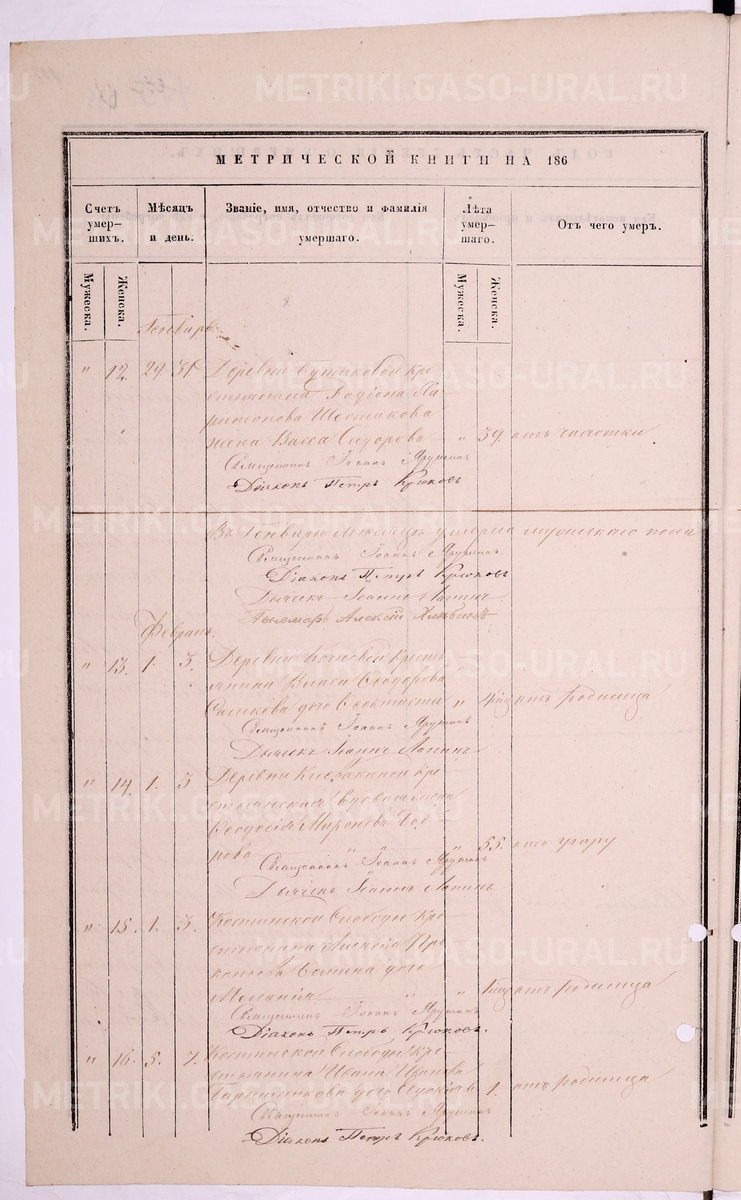 METRIKI.GASO-URAL.RU
МЕТРИЧЕСКОЙ КНИГИ НА 186
Счетъ умер-шихъ.
Мѣсяцъ и день.
Званіе, имя, отчество и фамилія умершаго.
Лѣта умер-шаго.
Отъ чего умеръ.
Мужеска.
Женска.
Мужеска.
Женска.
Генварь
" 12. 29 31 Деревни кре-
стьянина Родіона
Шестакова
жена Васса Сидорова " 59 отъ чахотки
Священникъ Іоаннъ Ярушинъ
Діаконъ Петръ Крюковъ
Въ Генварѣ мѣсяцѣ умерло мужескаго пола
Священникъ Іоаннъ Ярушинъ
Діаконъ Петръ Крюковъ
Дьячекъ Іоаннъ Лапинъ
Пономарь Алексій
Февраль
" 13. 1. 3. Деревни кресть-
янина Власа Ѳеодорова
дочь " отъ родимца
Священникъ Іоаннъ Ярушинъ
Дьячекъ Іоаннъ Лапинъ
" 14. 1. 3 Деревни кре-
стьянская вдова
Ѳеодосія Миронова
" 55. отъ угару
Священникъ Іоаннъ Ярушинъ
Дьячекъ Іоаннъ Лапинъ
" 15. 1. 3. Костинской Слободы кре-
стьянина Алексѣя Про-
копьева дочь
Меланія " отъ родимца
Священникъ Іоаннъ Ярушинъ
Діаконъ Петръ Крюковъ.
" 16. 5. 7. Костинской Слободы кре-
стьянина Ивана Иванова
дочь Евдокія 1. отъ родимца
Священникъ Іоаннъ Ярушинъ
Діаконъ Петръ Крюковъ.